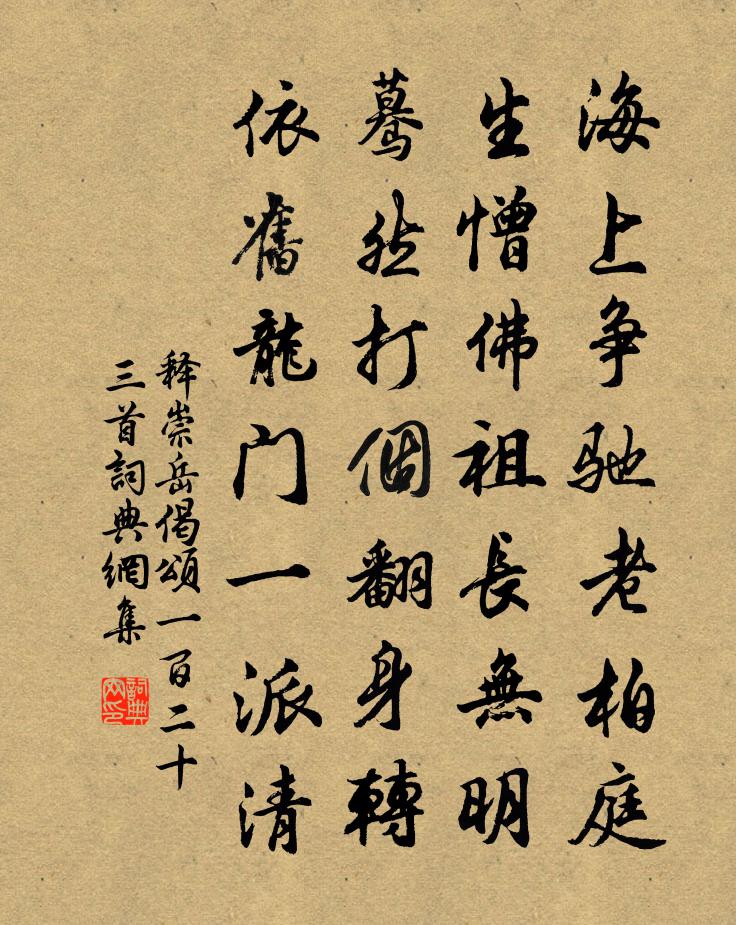 海上争馳老柏庭
生憎佛祖長無明
驀然打個翻身轉
依舊龍門一派清
释崇岳偈頌一百二十
三首詞典網集
詞典
网印